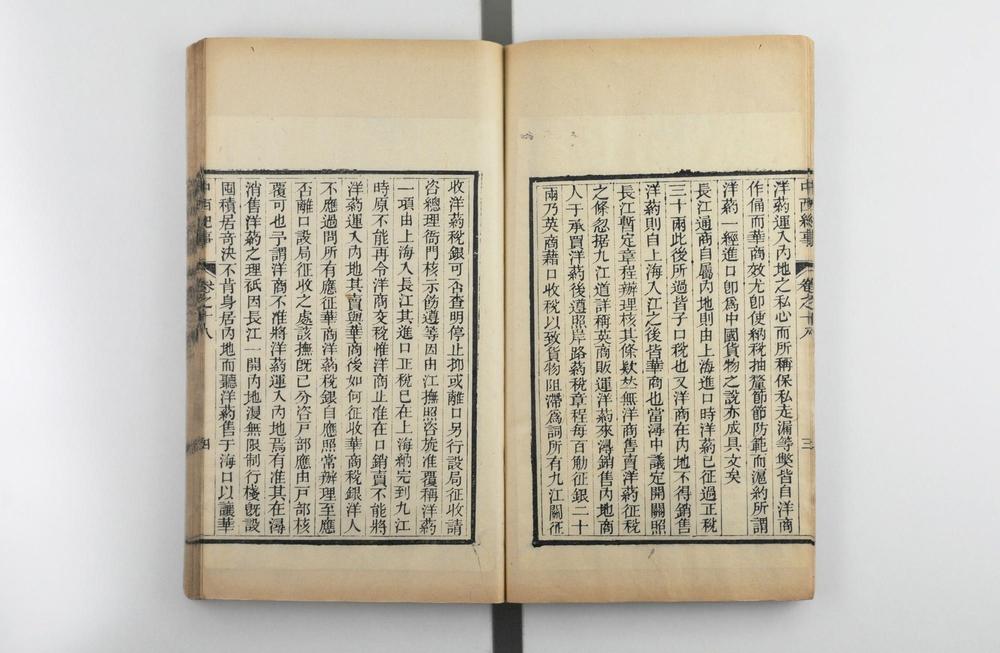 中西紀事
卷之十八
三
洋葯運入內地之私心而所稱保私走漏等獘皆自洋商
作俑而華商效尤卽使納稅抽釐節節防範而滬約所謂
洋葯一經進口卽爲中國貨物之說亦成具文矣
長江通商自屬內地則由上海進口時洋葯已征過正稅
三十兩此後所過皆子口稅也又洋商在內地不得銷售
洋葯則自上海入江之後皆華商也當潯中議定開關照
長江暫定章程辦理核其條欵並無洋商售賣洋葯征稅
之條忽据九江道詳稱英商販運洋葯來潯銷售內地商
人于承買洋葯後遵照岸路葯稅章程每百觔征銀二十
兩乃英商藉口收稅以致貨物阻滯爲詞所有九江關征
收洋葯稅銀可否查明停止抑或離口另行設局征收請
咨總理衙門核示飭遵等因由江撫照咨旋准覆稱洋葯
一項由上海入長江其進口正稅已在上海納完到九江
時原不能再令洋商交稅惟洋商止准在口銷賣不能將
洋葯運入內地其賣與華商後如何征收華商稅銀洋人
不應過問所有應征華商洋葯稅銀自應照常辦理至應
否離口設局征收之處該撫旣已分咨戸部應由戸部核
覆可也予謂洋商不准將洋葯運入內地焉有准其在潯
消售洋葯之理祇因長江一開內地漫無限制行棧旣設
囤積居奇決不肯身居內地而聽洋葯售于海口以讓華
中西紀事
卷之十八